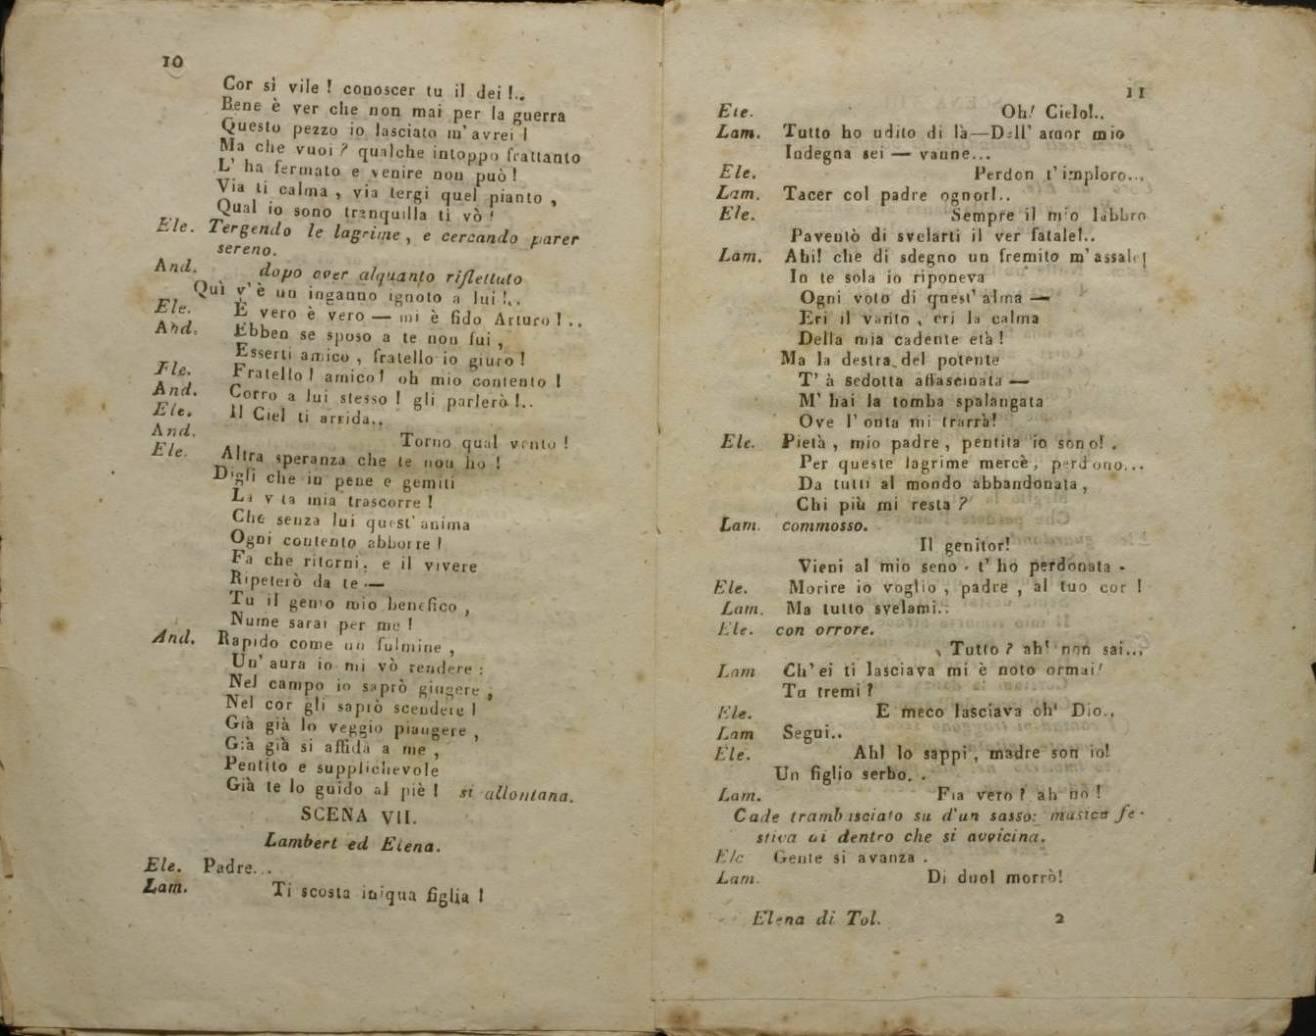 10
Cor sì vile ! conoscer tu il dei !..
Bene è ver che non mai per la guerra
Questo pezzo io lasciato m'avrei !
Ma che vuoi ? qualche intoppo frattanto
L' ha fermato e venire non può !
Via ti calma , via tergi quel pianto ,
Qual io sono tranquilla ti vò !
Ele. Tergendo le lagrime , e cercando parer
sereno.
And. dopo aver alquanto riflettuto
Quì v'è un inganno ignoto a lui !..
Ele. È vero è vero — mi è fido Arturo ! ..
And. Ebben se sposo a te non fui ,
Esserti amico , fratello io giuro !
Ele. Fratello ! amico ! oh mio contento !
And. Corro a lui stesso ! gli parlerò !..
Ele. Il Ciel ti arrida..
And. Torno qual vento !
Ele. Altra speranza che te non ho !
Digli che in pene e gemiti
La vita mia trascorre !
Che senza lui quest' anima
Ogni contento abborre !
Fa che ritorni, e il vivere
Ripeterò da te —
Tu il genio mio benefico ,
Nume sarai per me !
And. Rapido come un fulmine ,
Un' aura io mi vò rendere :
Nel campo io saprò giugere ,
Nel cor gli saprò scendere !
Già già lo veggio piangere ,
Già già si affida a me ,
Pentito e supplichevole
Già te lo guido al piè ! si allontana.
SCENA VII.
Lambert ed Elena.
Ele. Padre...
Lam. Ti scosta iniqua figlia !
11
Ele. Oh! Cielo!..
Lam. Tutto ho udito di là—Dall' amor mio
Indegna sei — vanne...
Ele. Perdon t'imploro...
Lam. Tacer col padre ognor!..
Ele. Sempre il mio labbro
Paventò di svelarti il ver fatale!..
Lam. Ahi! che di sdegno un fremito m'assale!
In te sola io riponeva
Ogni voto di quest' alma —
Eri il vanto , eri la calma
Della mia cadente età !
Ma la destra del potente
T' à sedotta affascinata —
M' hai la tomba spalangata
Ove l' onta mi trarrà!
Ele. Pietà , mio padre , pentita io sono! .
Per queste lagrime mercè , perdono...
Da tutti al mondo abbandonata ,
Chi più mi resta ?
Lam. commosso.
Il genitor!
Vieni al mio seno . t' ho perdonata .
Ele. Morire io voglio , padre , al tuo cor !
Lam. Ma tutto svelami..
Ele. con orrore.
Tutto ? ah! non sai...
Lam Ch' ei ti lasciava mi è noto ormai!
Tu tremi ?
Ele. E meco lasciava oh! Dio..
Lam Segui..
Ele. Ah! lo sappi , madre son io!
Un figlio serbo. .
Lam. Fia vero ? ah nò !
Cade trambasciato su d'un sasso: musica fe-
stiva di dentro che si avvicina.
Ele Gente si avanza .
Lam. Di duol morrò!
Elena di Tol. 2